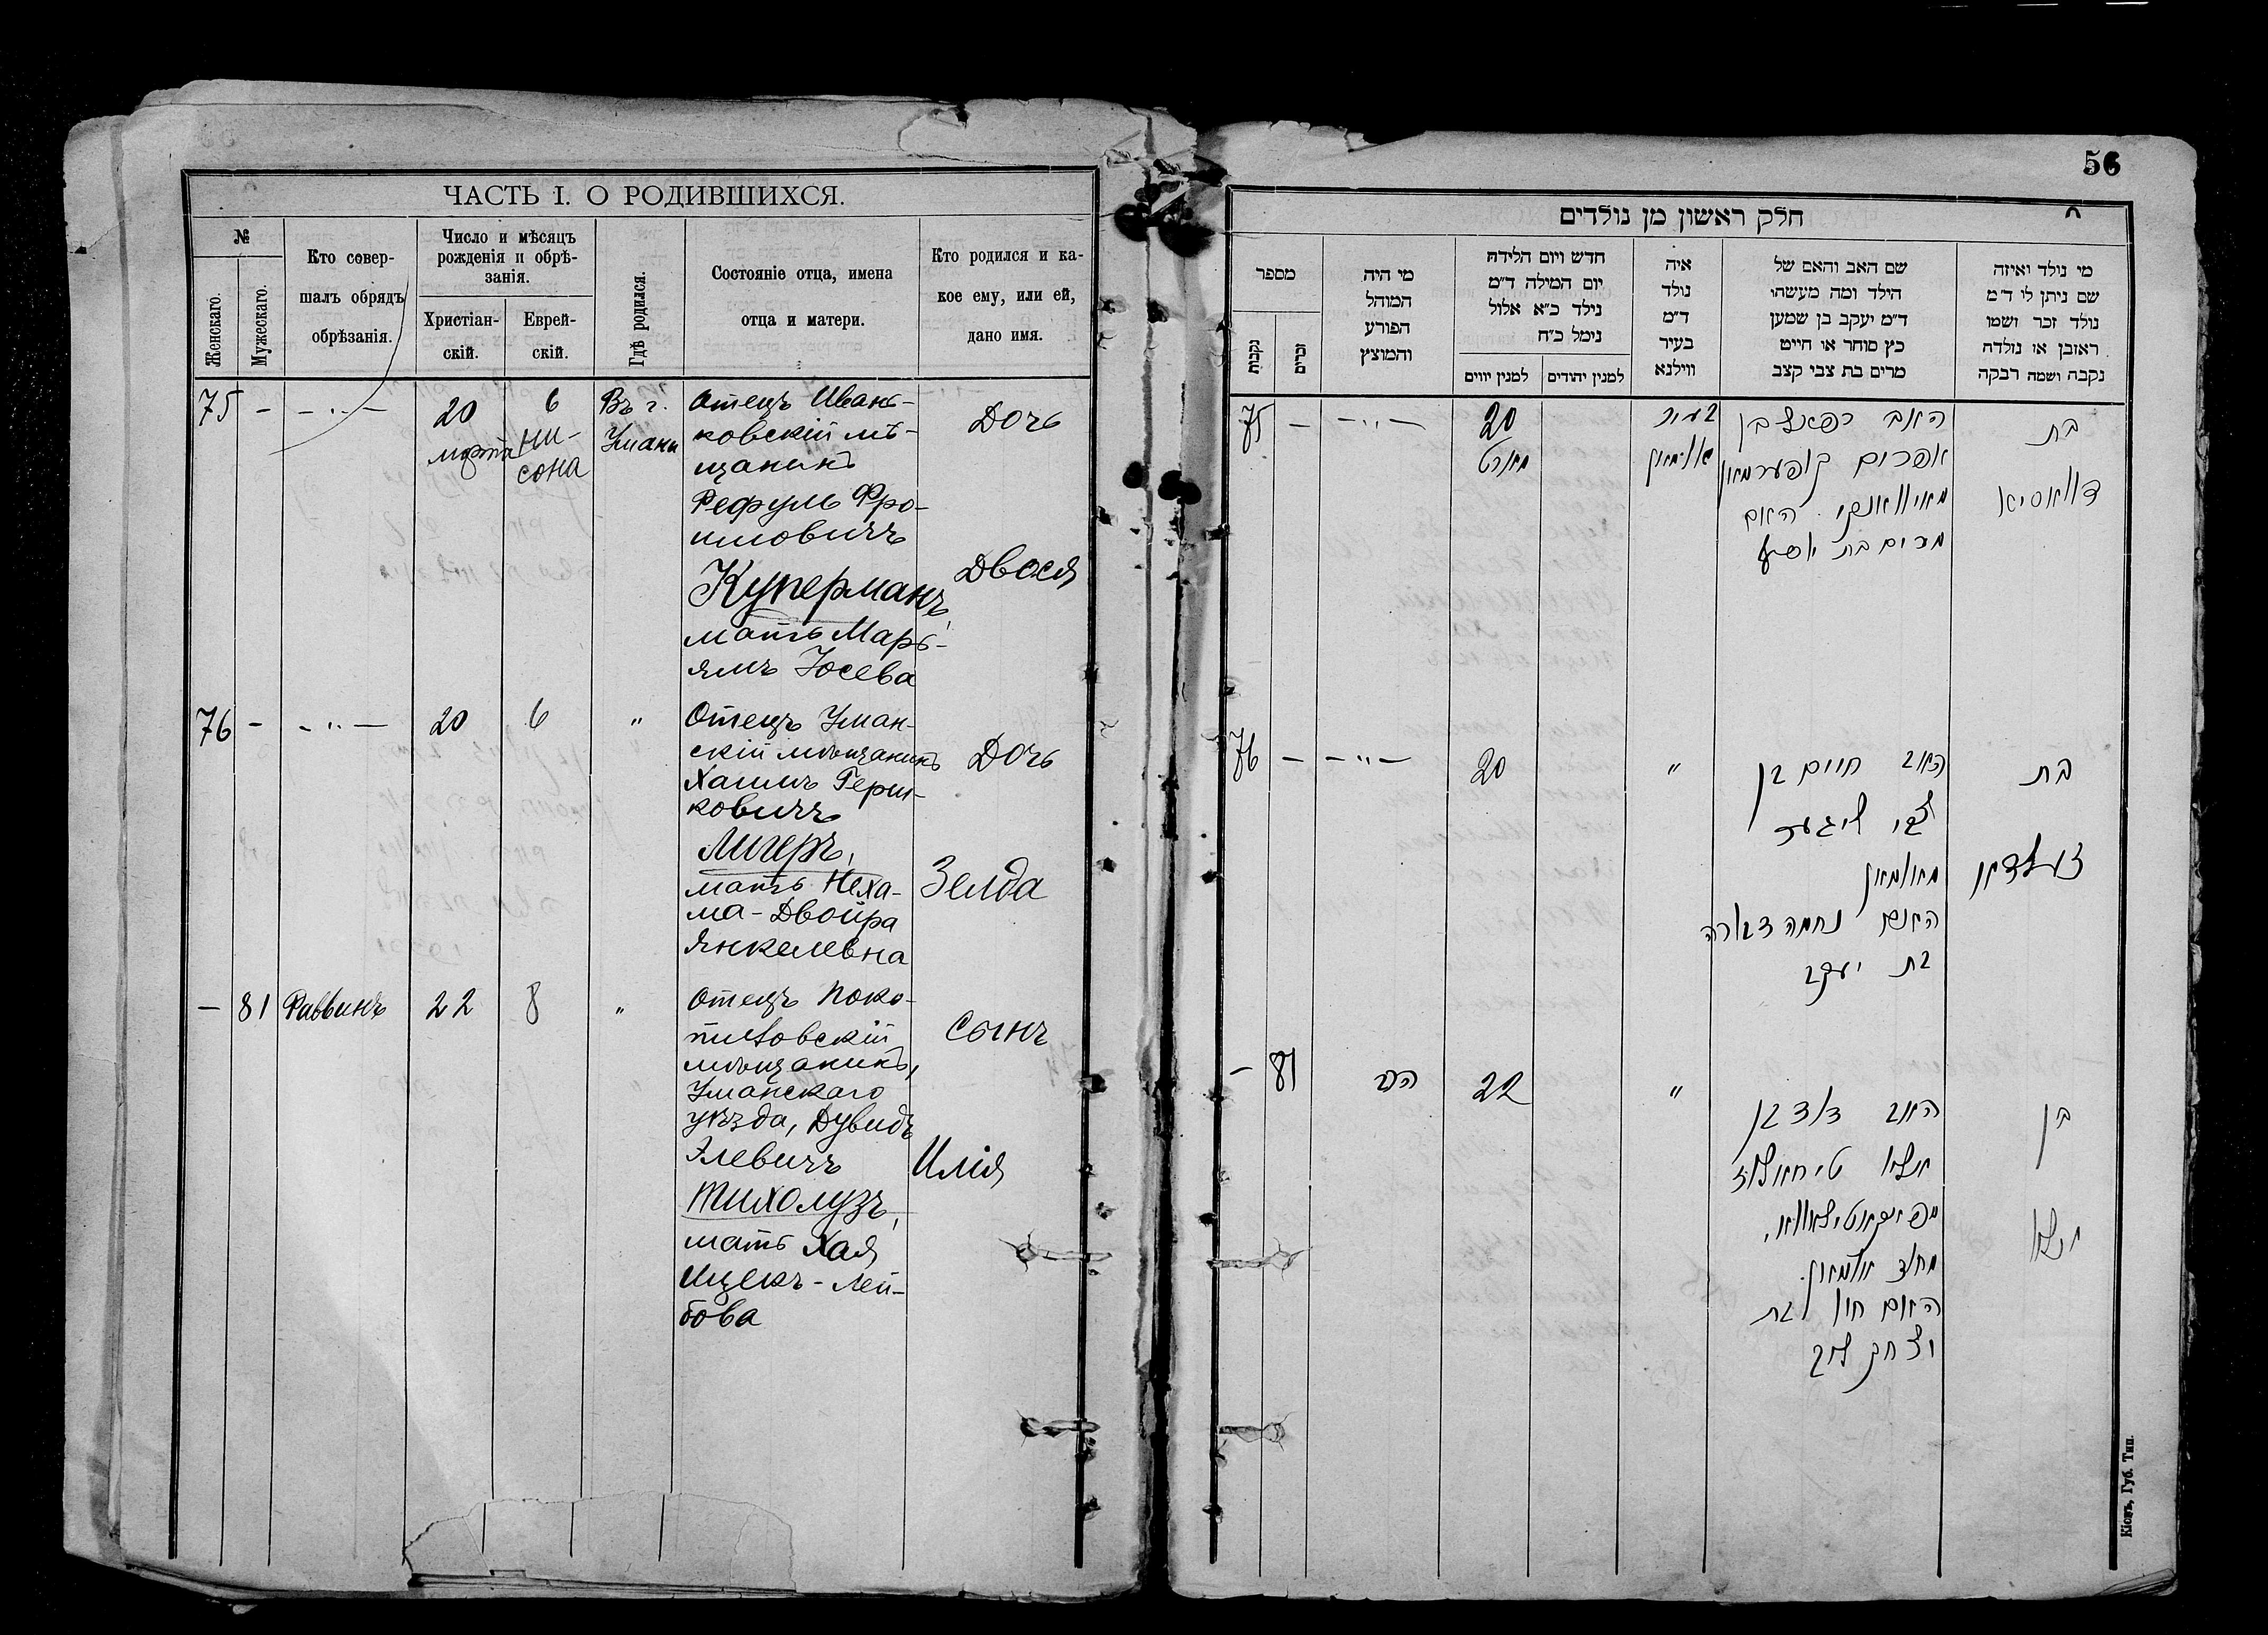 ЧАСТЬ I. О РОДИВШИХСЯ.
№
Женскаго.
Мужескаго.
Кто совер-
шалъ обрядъ
обрѣзанія.
Число и мѣсяцъ
рожденія и обрѣ-
занія.
Христіан-
скій.
Еврей-
скій.
Гдѣ родился.
Состояніе отца, имена
отца и матери.
Кто родился и ка-
кое ему, или ей,
дано имя.
75 - - „ -
20
марта
6
ни-
сона
Въ г.
Умани
Отецъ Ивань-
ковскій мѣ-
щанинъ
Рефулъ Фро-
имовичъ
Куперманъ,
мать Марь-
ямъ Юсева
Дочь
Двося
76 - - „ -
20
6
„
Отецъ Уман-
скій мѣщанинъ
Хаимъ Герш-
ковичъ
Лигеръ,
мать Неха-
ма-Двойра
Янкелевна
Дочь
Зелда
- 81 Раввинъ
22
8
„
Отецъ Поко-
тиловскій
мѣщанинъ,
Уманскаго
уѣзда, Дувидъ
Элевичъ
Тихолузъ,
мать Хая
Ицекъ-Лей-
бова
Сынъ
Илія
56
חלק ראשון מן נולדים
מספר
נקבות
זכרים
מי היה
המוהל
הפורע
והמוצץ
חדש ויום הלידה
יום המילה ד״מ
נילד כ״א אלול
נימל כ״ח
למנין יווים
למנין יהודים
איה
נולד
ד״מ
בעיר
ווילנא
שם האב והאם של
הילד ומה מעשהו
ד״מ יעקב בן שמען
כץ סוחר או חייט
מרים בת צבי קצב
מי נולד ואיזה
שם ניתן לו ד״מ
נולד זכר ושמו
ראובן או נולדה
נקבה ושמה רבקה
75 - - „ -
20
מארט
בעיר
אומאן
האב רפאל בן
אפרים קופערמאן
מאיוואנקי. האם
מרים בת
בת
דוואסיא
76 - - „ -
20
„
האב חיים בן
צבי ליגער
מאומאן
האם נחמה דבורה
בת יעקב
בת
זעלדא
- 81
הרב
22
„
האב דוד בן
אלי' טיחאלוז
מפאקאטילאווא,
אומאן.
האם חי' בת
יצחק ליב
בן
אלי'
Кіевъ, Губ. Тип.